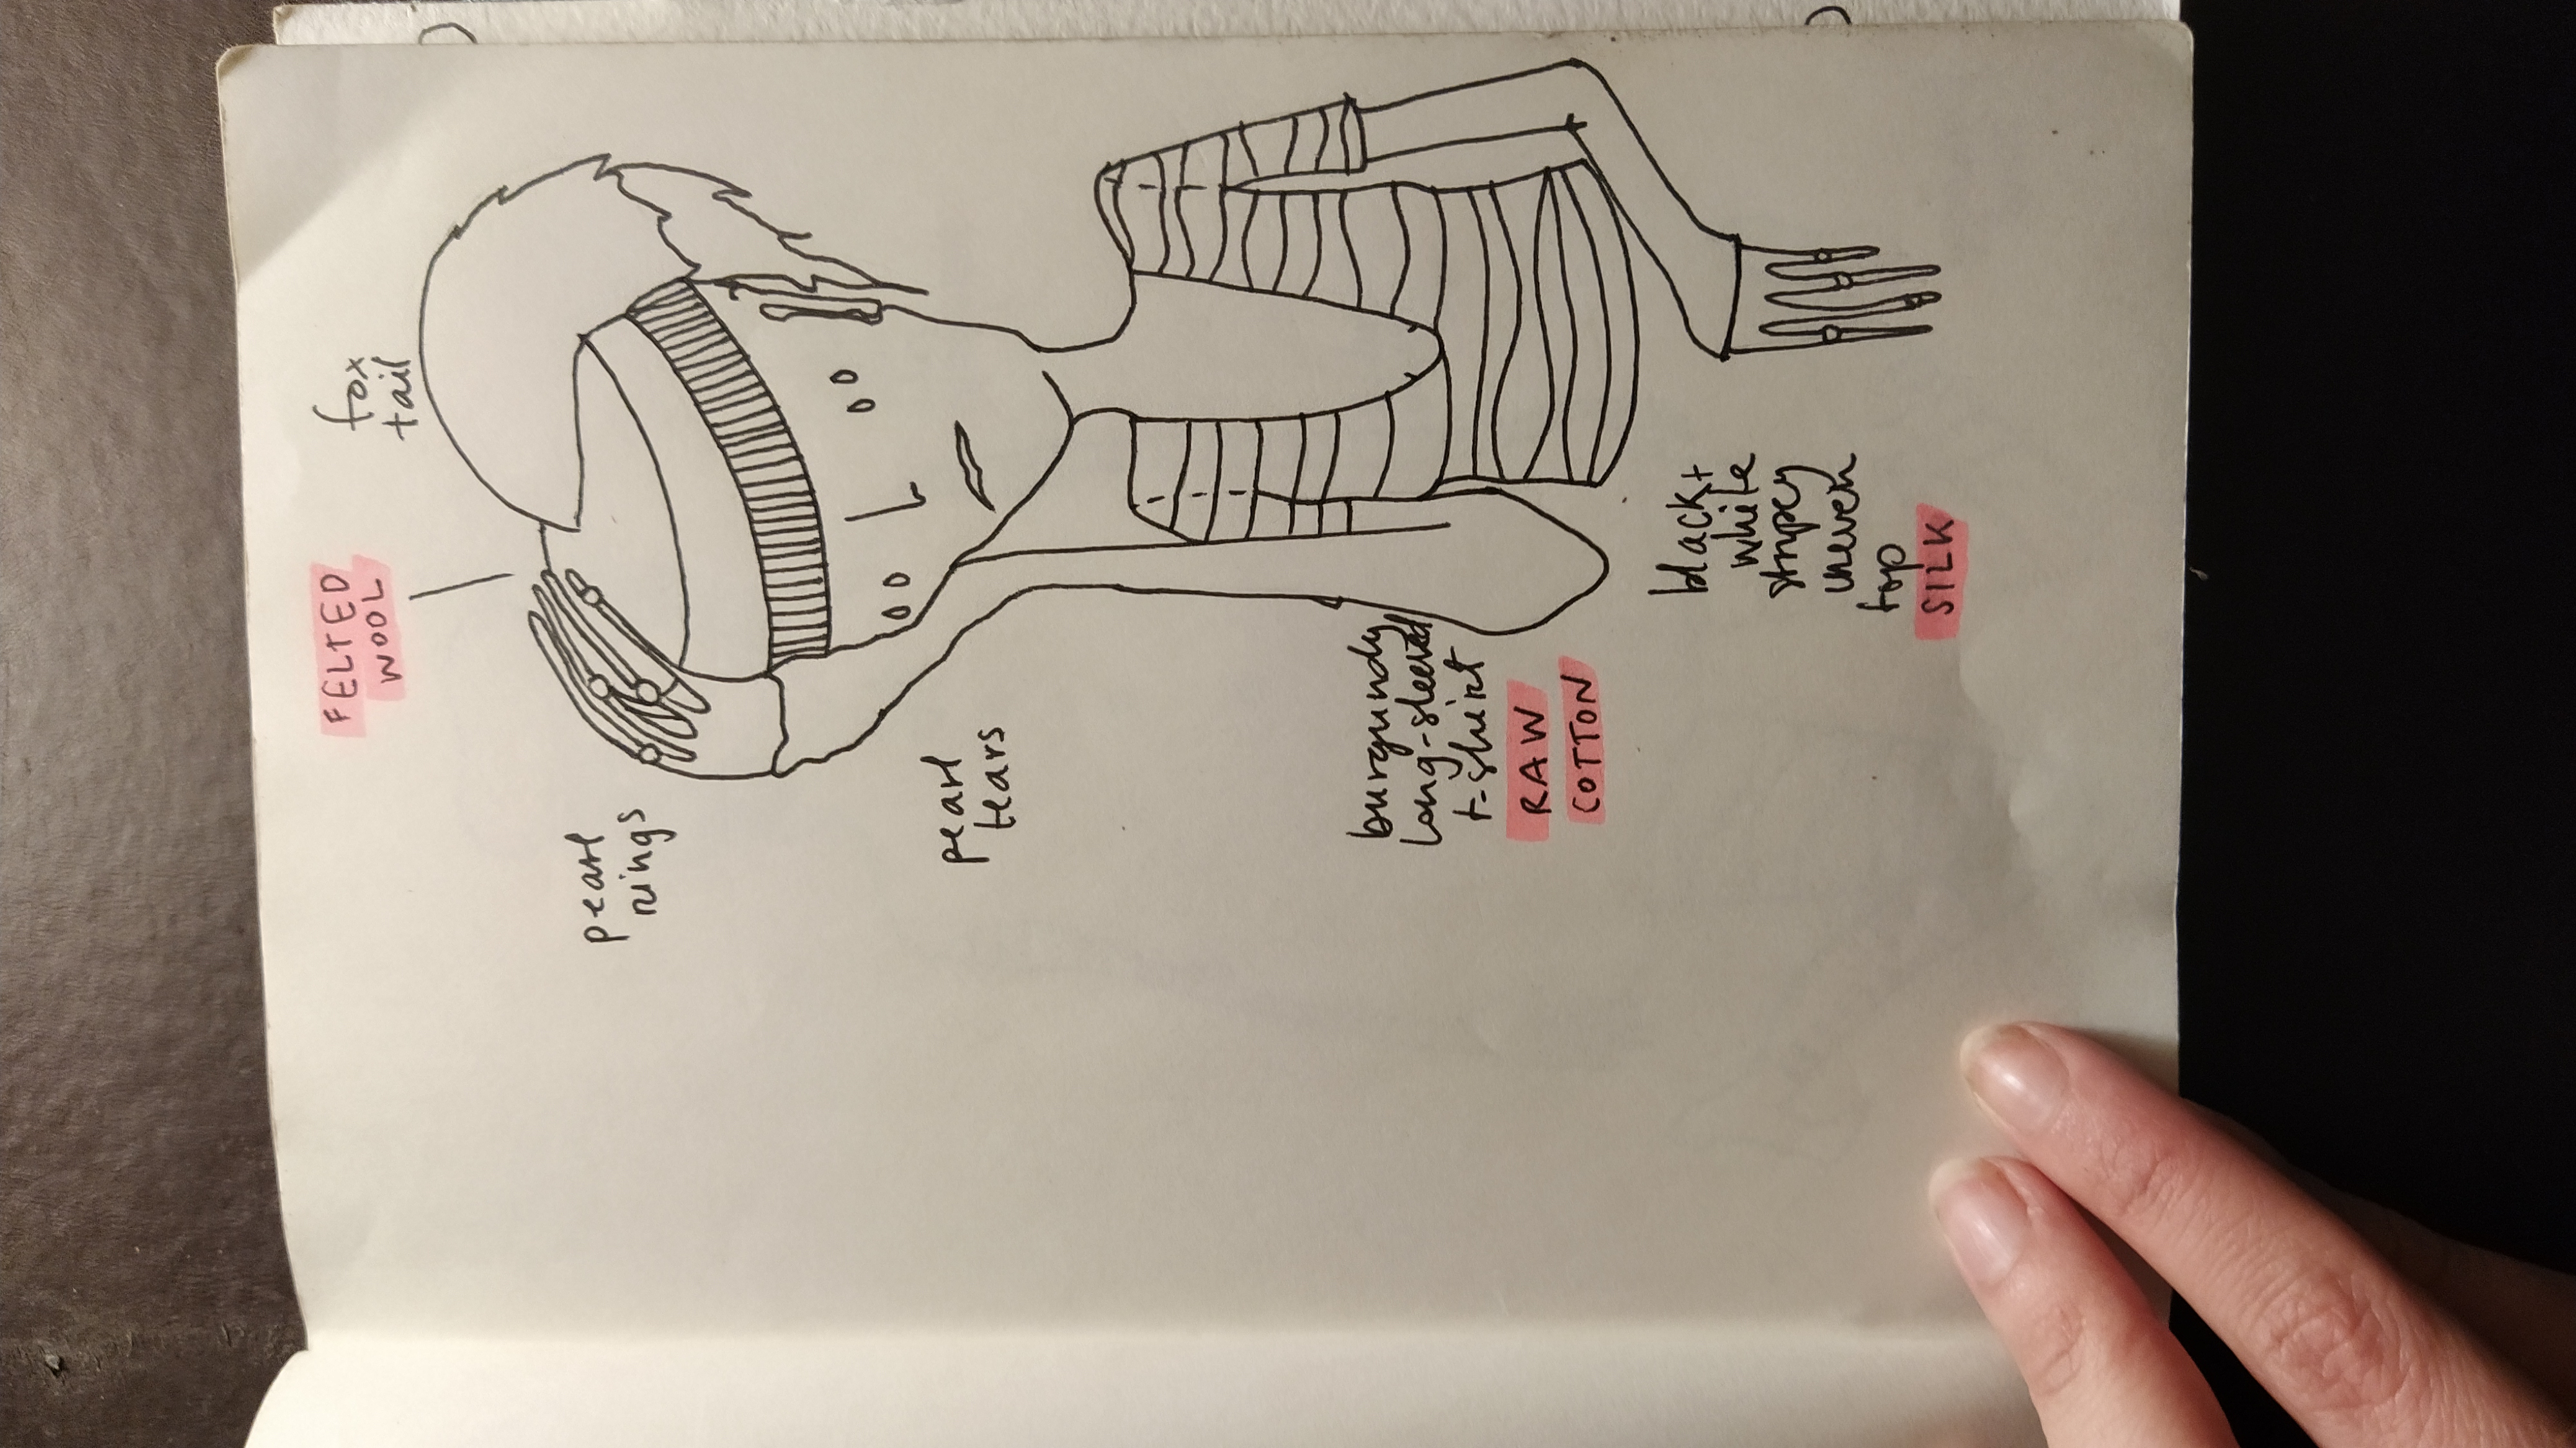 FELTED
WOOL
fox
tail
pearl
rings
pearl
tears
burgundy
long-sleeved
t-shirt
RAW
COTTON
black+
white
stripey
uneven
top
SILK